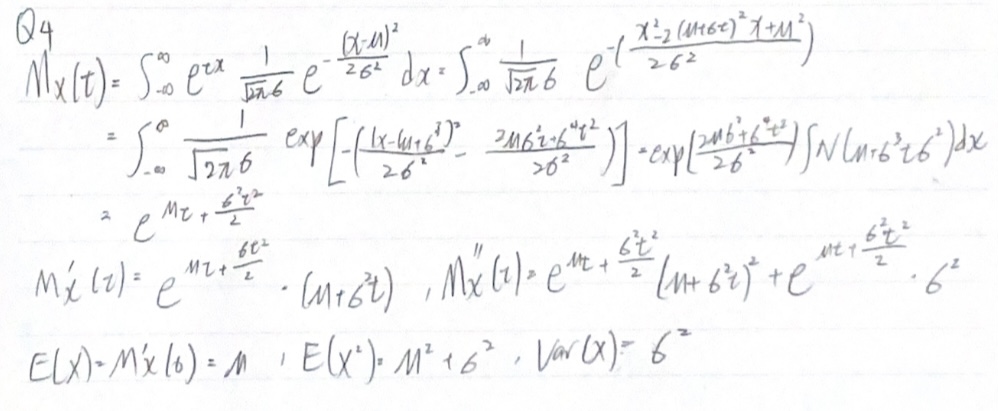 Q4
Mx(t) = ∫_{-∞}^{∞} e^{tx} 1/(√2π 6) e^{-(x-μ)²/26²} dx = ∫_{-∞}^{∞} 1/(√2π 6) e^{-((x²-2(μ+6t)²x+μ²)/26²)}
= ∫_{-∞}^{∞} 1/(√2π 6) exp[-((x-(μ+6³)²/26² - (2μ6²t+6⁴t²)/26²)] = exp(2μ6²+6⁴t²/26²) ∫N(μ+6³t6²)dx
= e^{μt + 6²t²/2}
M'x(t) = e^{μt + 6t²/2} · (μ+6²t), Mx''(t) = e^{μt + 6²t²/2} (μ+6²t)² + e^{μt + 6²t²/2} · 6²
E(X) = M'x(0) = μ, E(X²) = μ² + 6², Var(x) = 6²